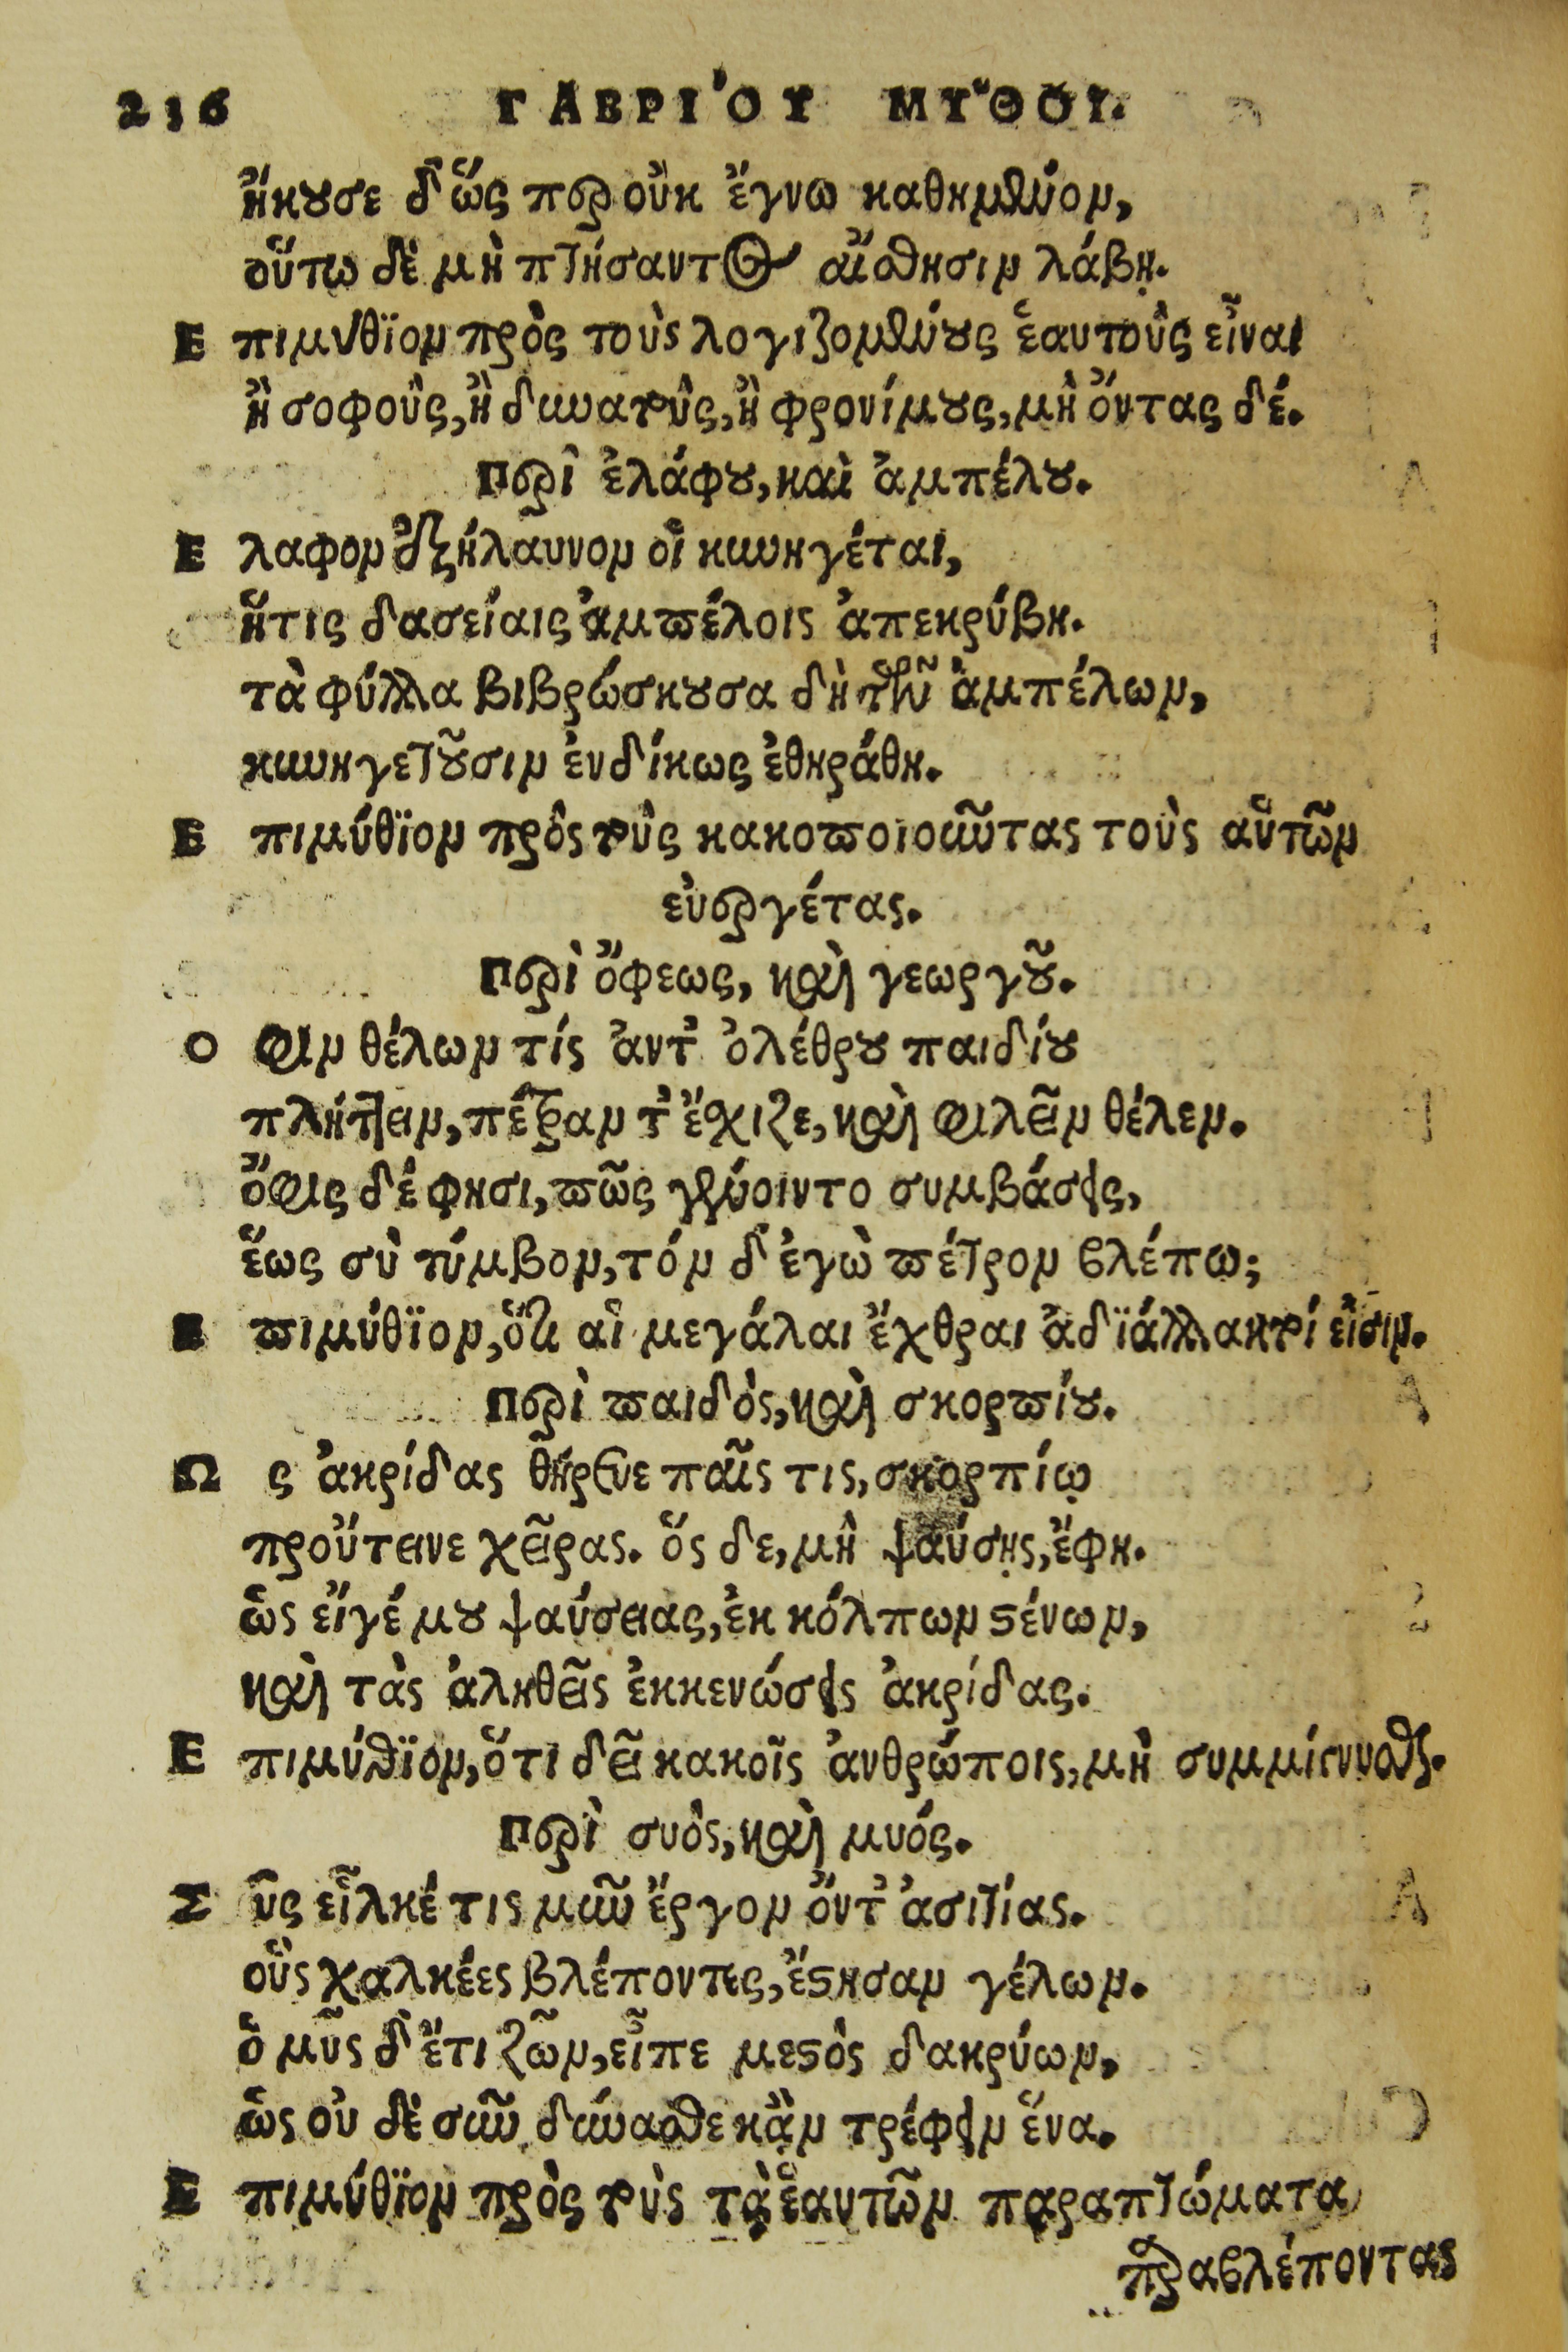 236 ΓΑΒΡΙ´ΟΥ ΜΥ῎ΘΟΙ.
ἤκουσε δ᾽ ὥς περ οὐκ ἔγνω καθημένον,
οὕτω δὲ μὴ πτήσαντος αἴσθησιν λάβῃ.
Ε πιμύθϊον πρὸς τοὺς λογιζομένους ἑαυτοὺς εἶναι
ἢ σοφοὺς, ἢ δυνατοὺς, ἢ φρονίμους, μὴ ὄντας δέ.
Περὶ ἐλάφου, καὶ ἀμπέλου.
Ε λαφον ἐξήλαυνον οἱ κυνηγέται,
ἥτις δασείαις ἀμπέλοις ἀπεκρύβη.
τὰ φύλλα βιβρώσκουσα δὴ τῶν ἀμπέλων,
κυνηγετοῦσιν ἐνδίκως ἐθηράθη.
Ε πιμύθϊον πρὸς τοὺς κακοποιοῦντας τοὺς αὑτῶν
εὐεργέτας.
Περὶ ὄφεως, καὶ γεωργοῦ.
Ο φιν θέλων τίς ἀντ᾽ ὀλέθρου παιδίου
πλήττειν, πέτραν τ᾽ ἔσχιζε, καὶ φιλεῖν θέλεν.
ὄφις δέ φησι, πῶς γένοιντο συμβάσεις,
ἕως σὺ τύμβον, τόν δ᾽ ἐγὼ πέτρον βλέπω;
Ε πιμύθϊον, ὅτι αἱ μεγάλαι ἔχθραι ἀδϊάλλακτοί εἰσιν.
Περὶ παιδὸς, καὶ σκορπίου.
Ω ς ἀκρίδας θήρευε παῖς τις, σκορπίῳ
προὔτεινε χεῖρας. ὅς δε, μὴ ψαύσῃς, ἔφη.
ὡς εἴγέ μου ψαύσειας, ἐκ κόλπων στένων,
καὶ τὰς ἀληθεῖς ἐκκενώσεις ἀκρίδας.
Ε πιμύθϊον, ὅτι δεῖ κακοῖς ἀνθρώποις, μὴ συμμίγνυσθαι.
Περὶ συὸς, καὶ μυός.
Σ ῦς εἷλκέ τις μῦν ἔργον ὄντ᾽ ἀσιτίας.
οὓς χαλκέες βλέποντες, ἔστησαν γέλων.
ὁ μῦς δ᾽ ἔτι ζῶν, εἶπε μεστὸς δακρύων,
ὡς οὐ δὲ σῦν δύνασθε κἂν τρέφειν ἕνα.
Ε πιμύθϊον πρὸς τοὺς τὰ ἑαυτῶν παραπτώματα
παραβλέποντας